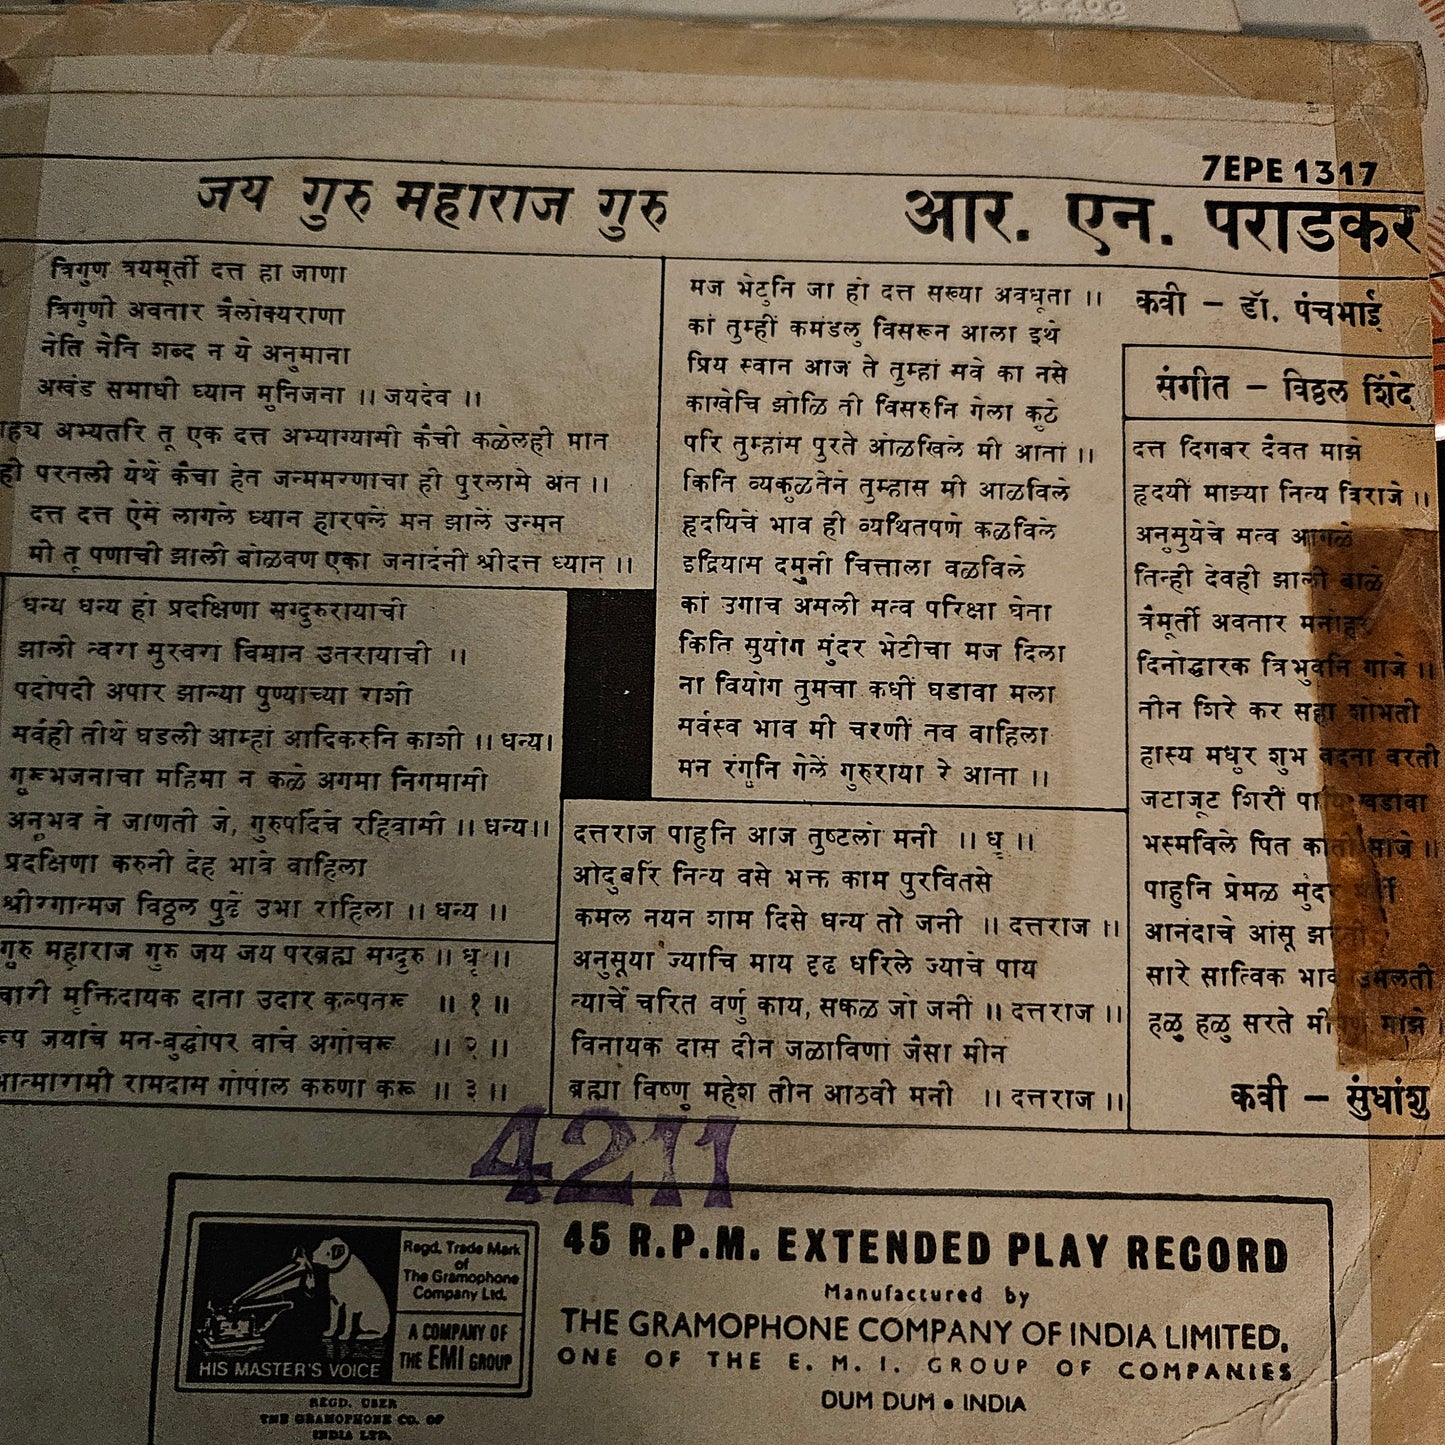 7EPE 1317
जय गुरु महाराज गुरु
आर. एन. पराडकर
त्रिगुण त्रयमूर्ती दत्त हा जाणा
त्रिगुणी अवतार त्रैलोक्यराणा
नेति नेति शब्द न ये अनुमाना
अखंड समाधी ध्यान मुनिजना ।। जयदेव ।।
अभ्यतरि तू एक दत्त अभ्याग्यामी कैची कळेलही मात
ही परतली येथे कैचा हेत जन्ममरणाचा ही पुरलासे अंत ।।
दत्त दत्त ऐसें लागले ध्यान हारपलें मन झालें उन्मन
मी तू पणाची झाली बोळवण एका जनार्दनीं श्रीदत्त ध्यान ।।
धन्य धन्य हो प्रदक्षिणा सद्गुरुरायाची
झाली त्वरा सुरवरां विमान उतरायाची ।।
पदोपदी अपार झाल्या पुण्याच्या राशी
सर्वही तीर्थे घडली आम्हां आदिकरुनि काशी ।। धन्य।
गुरुभजनाचा महिमा न कळे अगमा निगमासी
अनुभव ते जाणती जे, गुरुपदिंचे रहिवासी ।। धन्य।।
प्रदक्षिणा करुनी देह भावे वाहिला
श्रीरंगात्मज विठ्ठल पुढें उभा राहिला ।। धन्य ।।
गुरु महाराज गुरु जय जय परब्रह्म सद्गुरु ।। धृ ।।
मुक्तिदायक दाता उदार कल्पतरू ।। १ ।।
जयाचे मन-बुद्धीपर वाचे अगोचरू ।। २ ।।
रामदास गोपाल करुणा करू ।। ३ ।।
मज भेटुनि जा हो दत्त सख्या अवधूता ।।
कां तुम्हीं कमंडलु विसरून आला इथे
प्रिय स्वान आज ते तुम्हां सवे का नसे
काखेचि झोळि ती विसरुनि गेला कुठे
परि तुम्हांस पुरते ओळखिले मी आतां ।।
किति व्यकुळतेने तुम्हास मी आळविले
हृदयिचें भाव ही व्यथितपणे कळविले
इंद्रियास दमुनी चित्ताला वळविले
कां उगाच असली सत्व परिक्षा घेता
किति सुयोग सुंदर भेटीचा मज दिला
ना वियोग तुमचा कधीं घडावा मला
सर्वस्व भाव मी चरणीं तव वाहिला
मन रंगुनि गेलें गुरुराया रे आता ।।
दत्तराज पाहुनि आज तुष्टलो मनी ।। धृ ।।
औदुंबरिं नित्य वसे भक्त काम पुरवितसे
कमल नयन शाम दिसे धन्य तो जनी ।। दत्तराज ।।
अनुसूया ज्याचि माय दृढ धरिले ज्याचे पाय
त्याचें चरित वर्णु काय, सकळ जो जनी ।। दत्तराज ।।
विनायक दास दीन जळाविणां जैसा मीन
ब्रह्मा विष्णु महेश तीन आठवी मनी ।। दत्तराज ।।
कवी – डॉ. पंचभाई
संगीत – विठ्ठल शिंदे
दत्त दिगंबर दैवत माझे
हृदयीं माझ्या नित्य विराजे ।।
अनुसुयेचे सत्व आगळे
तिन्ही देवही झाली बाळे
त्रैमूर्ती अवतार मनोहर
दिनोद्धारक त्रिभुवनि गाजे ।।
तीन शिरे कर सहा शोभती
हास्य मधुर शुभ वदना वरती
जटाजूट शिरीं पायि खडावा
भस्मविले पित कांती साजे ।।
पाहुनि प्रेमळ सुंदर मूर्ती
आनंदाचे आंसू झरती
सारे सात्विक भाव उमलती
हळु हळु सरते मीपण माझे
कवी – सुंधांशु
4211
45 R.P.M. EXTENDED PLAY RECORD
Manufactured by
THE GRAMOPHONE COMPANY OF INDIA LIMITED.
ONE OF THE E. M. I. GROUP OF COMPANIES
DUM DUM • INDIA
Regd. Trade Mark
of
The Gramophone
Company Ltd.
A COMPANY OF
THE EMI GROUP
HIS MASTER'S VOICE
REGD. USER
THE GRAMOPHONE CO. OF
INDIA LTD.